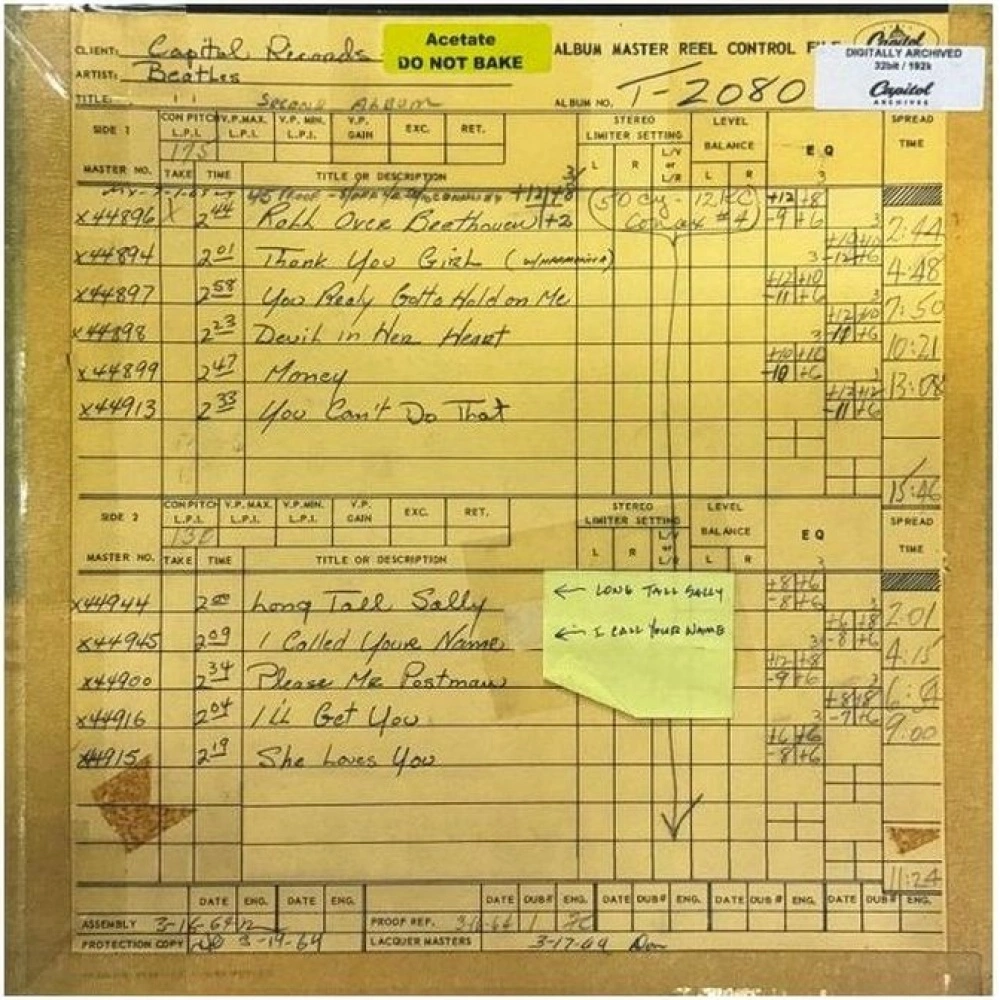 CLIENT: Capitol Records
Acetate
DO NOT BAKE
ALBUM MASTER REEL CONTROL FILE
Capitol
DIGITALLY ARCHIVED
32bit / 192k
Capitol
ARCHIVES
ARTIST: Beatles
TITLE: " " SECOND ALBUM
ALBUM NO. T-2080
SIDE 1 CON PITCH L.P.I. V.P.MAX. L.P.I. V.P. MIN. L.P.I. V.P. GAIN EXC. RET. STEREO LIMITER SETTING L R L/V or L/R LEVEL BALANCE L R E Q SPREAD TIME
175
MASTER NO. TAKE TIME TITLE OR DESCRIPTION
X44896 X 2 44 Roll Over Beethoven +2 (50 cy - 12 KC #4) +12 +8 -9 +6 2:44
X44894 2 01 Thank You Girl (w/harmonica) 4:48
X44897 2 58 You Realy Gotta Hold on Me +12 +10 -11 +6 7:50
X44898 2 23 Devil in Her Heart -11 +6 10:21
X44899 2 47 Money +10 +10 -10 +6 13:08
X44913 2 33 You Can't Do That -11 +6
15:46
SIDE 2 CON PITCH L.P.I. V.P. MAX. L.P.I. V.P.MIN. L.P.I. V.P. GAIN EXC. RET. STEREO LIMITER SETTING L R L/V or L/R LEVEL BALANCE L R E Q SPREAD TIME
130
MASTER NO. TAKE TIME TITLE OR DESCRIPTION
X44944 2 00 Long Tall Sally ← LONG TALL SALLY +8 +6 -8 +6 2:01
X44945 2 09 I Called Youre Name ← I CALL YOUR NAME +6 +8 -8 +6 4:15
X44900 2 34 Please Mr Postman +12 +8 -9 +6
X44916 2 04 I'll Get You +8 +8 -7 +6 9:00
X44915 2 19 She Loves You +6 +6 -8 +6
11:24
DATE ENG. DATE ENG. DATE DUB# ENG. DATE DUB# ENG. DATE DUB# ENG. DATE DUB# ENG.
ASSEMBLY 3-16-64 PROOF REF. 1
PROTECTION COPY 3-19-64 LACQUER MASTERS 3-17-64 Don